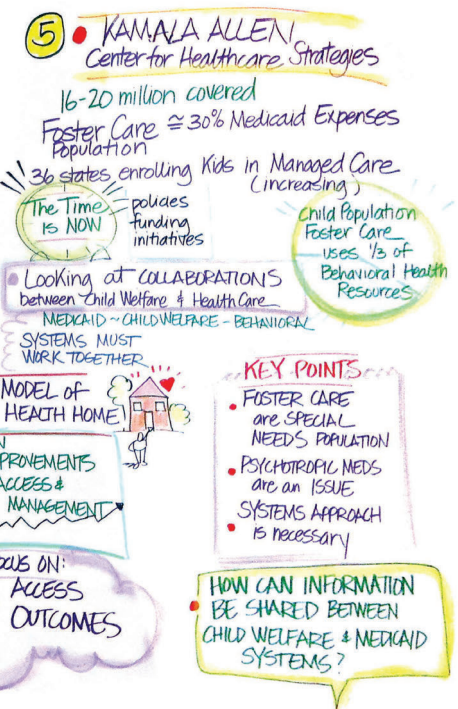 5 • KAMALA ALLEN
Center for Healthcare Strategies
16-20 million covered
Foster Care ≅ 30% Medicaid Expenses
Population
36 states enrolling Kids in Managed Care
(increasing)
The Time
IS NOW
policies
funding
initiatives
Child Population
Foster Care
uses 1/3 of
Behavioral Health
Resources
• LOOKING AT COLLABORATIONS
between Child Welfare & Health Care
MEDICAID ~ CHILD WELFARE - BEHAVIORAL
SYSTEMS MUST
WORK TOGETHER
MODEL of
HEALTH HOME
N
PROVEMENTS
ACCESS &
MANAGEMENT
OCUS ON:
ACCESS
OUTCOMES
KEY POINTS
• FOSTER CARE
are SPECIAL
NEEDS POPULATION
• PSYCHOTROPIC MEDS
are an ISSUE
• SYSTEMS APPROACH
is necessary
• HOW CAN INFORMATION
BE SHARED BETWEEN
CHILD WELFARE & MEDICAID
SYSTEMS?